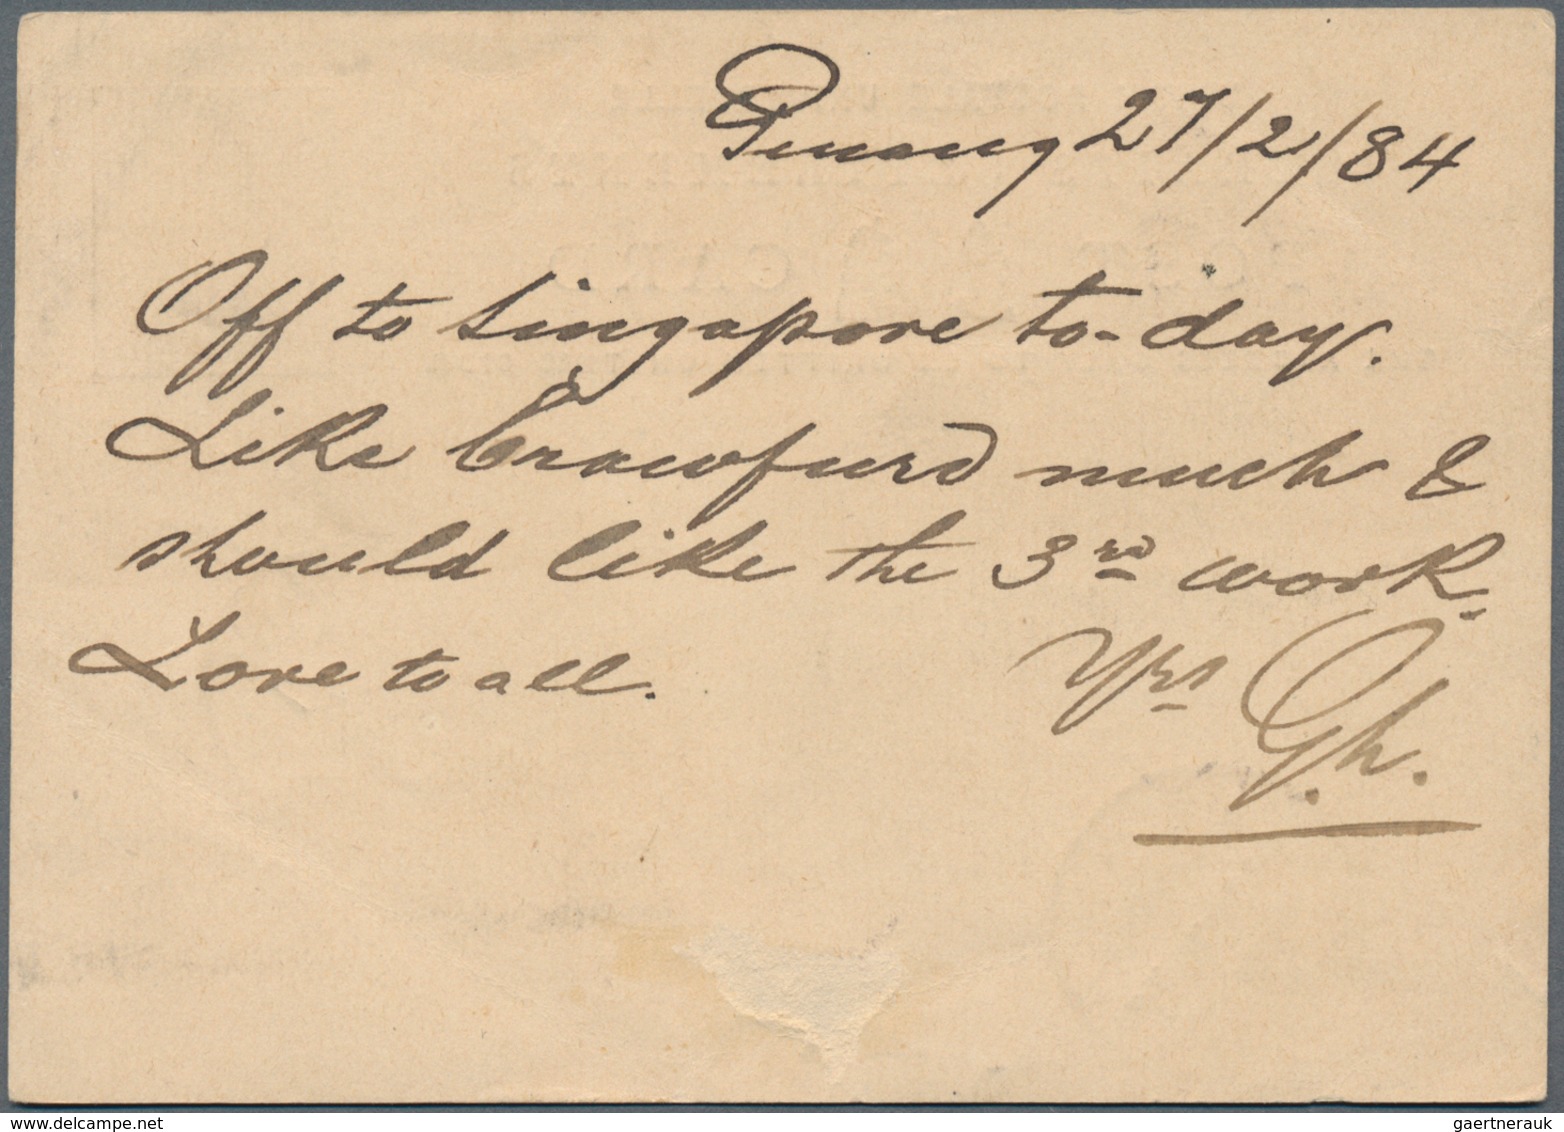 Penang 27/2/84
Off to Singapore to-day.
Like Crawfurd much &
should like the 3rd work.
Love to all. Yrs G.h.
gaertnerauk